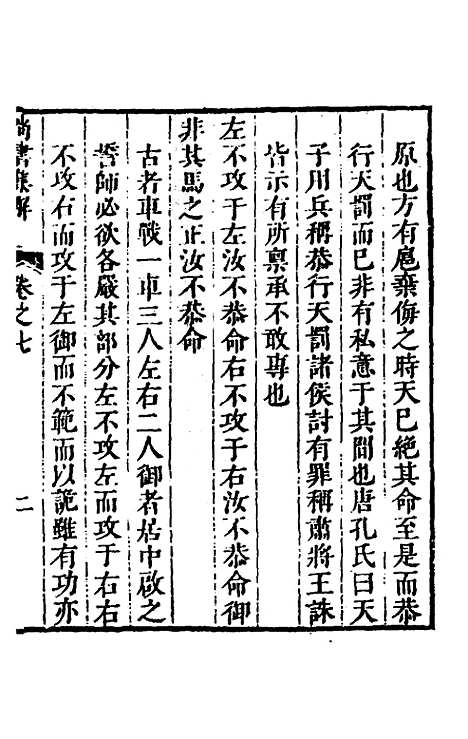 原也方有扈棄侮之時天已絶其命至是而恭
行天罰而已非有私意于其間也唐孔氏曰天
子用兵稱恭行天罰諸侯討有罪稱肅將王誅
皆示有所稟承不敢專也
左不攻于左汝不恭命右不攻于右汝不恭命御
非其馬之正汝不恭命
古者車戰一車三人左右二人御者居中啟之
誓師必欲各嚴其部分左不攻左而攻于右右
不攻右而攻于左御而不範而以詭雖有功亦
尚書集解 卷之七 二